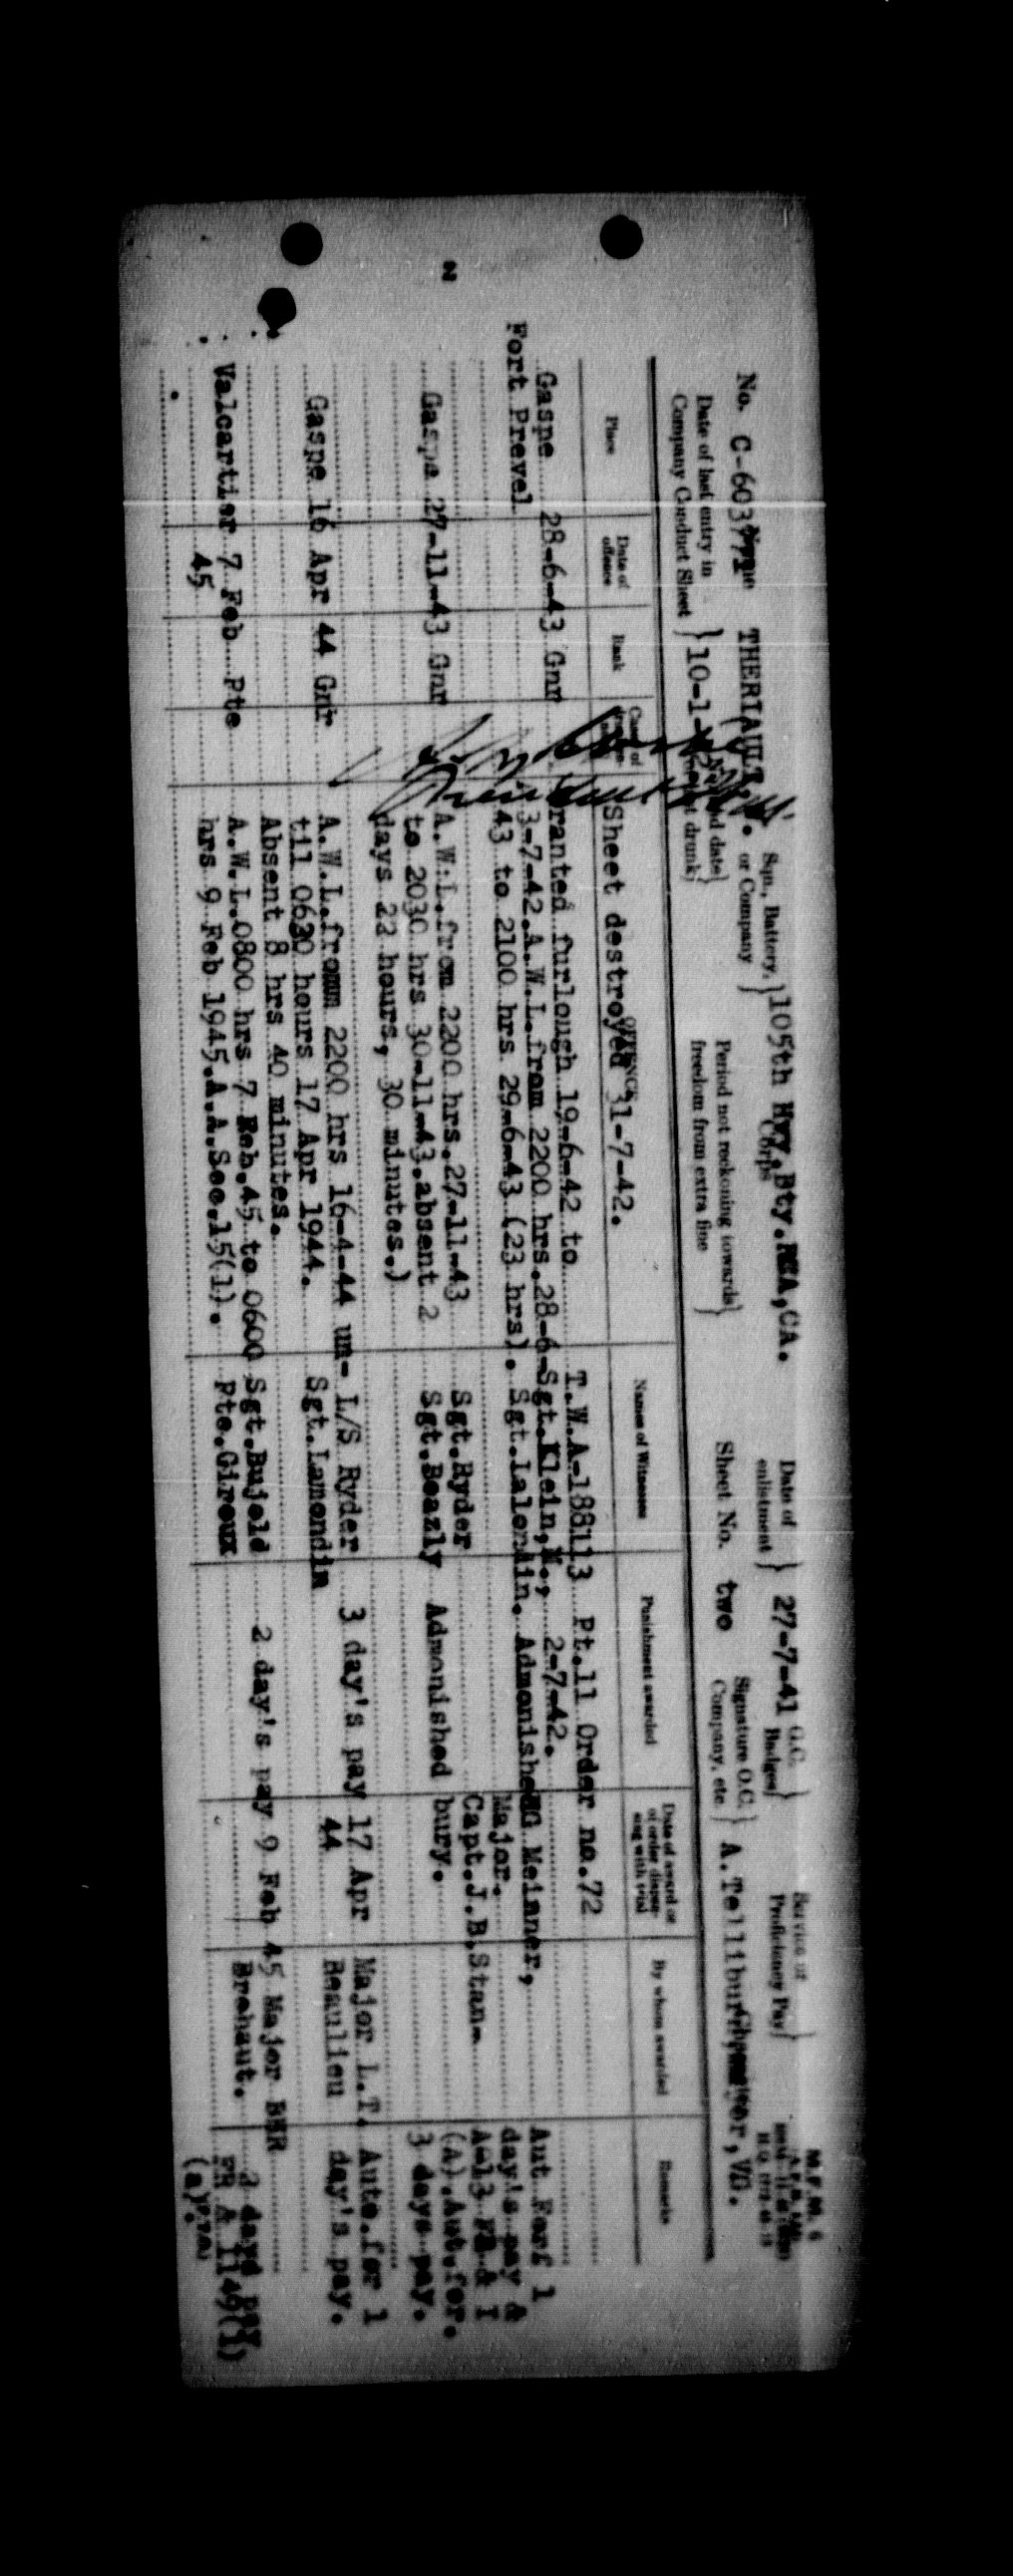 M.F.M. 6
No. C-603771 Name THERIAULT, Sqn., Battery, or Company 105th Hvy.Bty.RCA,CA. Corps Date of enlistment 27-7-41 G.C. Badges Service or Proficiency Pay
Date of last entry in Company Conduct Sheet 10-1- and date drunk Period not reckoning towards freedom from extra fine Sheet No. two Signature O.C. Company, etc. A.Tellibur VD.
Place Date of offence Rank Cases of OFFENCE Names of Witnesses Punishment awarded Date of award or of order dispensing with trial By whom awarded Remarks
Sheet destroyed 31-7-42.
T.W.A-188113 Pt.11 Order no.72
Gaspe 28-6-43 Gnr ranted furlough 19-6-42 to 2-7-42.
Fort Prevel 3-7-42.A.W.L.from 2200 hrs.28-6- Sgt.Klein, Meisner, Aut Forf 1
43 to 2100 hrs 29-6-43 (23 hrs). Sgt.Lalondin. Admonished Major. day's pay &
Capt.J.B.Stan- A-13 FR & I
Gaspe 27-11-43 Gnr A.W.L.from 2200 hrs.27-11-43 Sgt.Ryder bury. (A).Aut.for.
to 2030 hrs 30-11-43.absent 2 Sgt.Beazly Admonished 3 days pay.
days 22 hours, 30 minutes.)
Gaspe 16 Apr 44 Gnr A.W.L.fromm 2200 hrs 16-4-44 un- L/S Ryder 3 day's pay 17 Apr Major L.T. Auto.for 1
til 0630 hours 17 Apr 1944. Sgt.Lamondin 44 Beaulieu day's pay.
Absent 8 hrs 40 minutes.
Valcartier 7 Feb Pte A.W.L.0800 hrs 7 Feb.45 to 0600 Sgt.Bujold 2 day's pay 9 Feb 45 Major BHR
45 hrs 9 Feb 1945.A.A.Sec.15(1). Pte.Giroux Brehaut. FR A 1149(1)
(a).
2